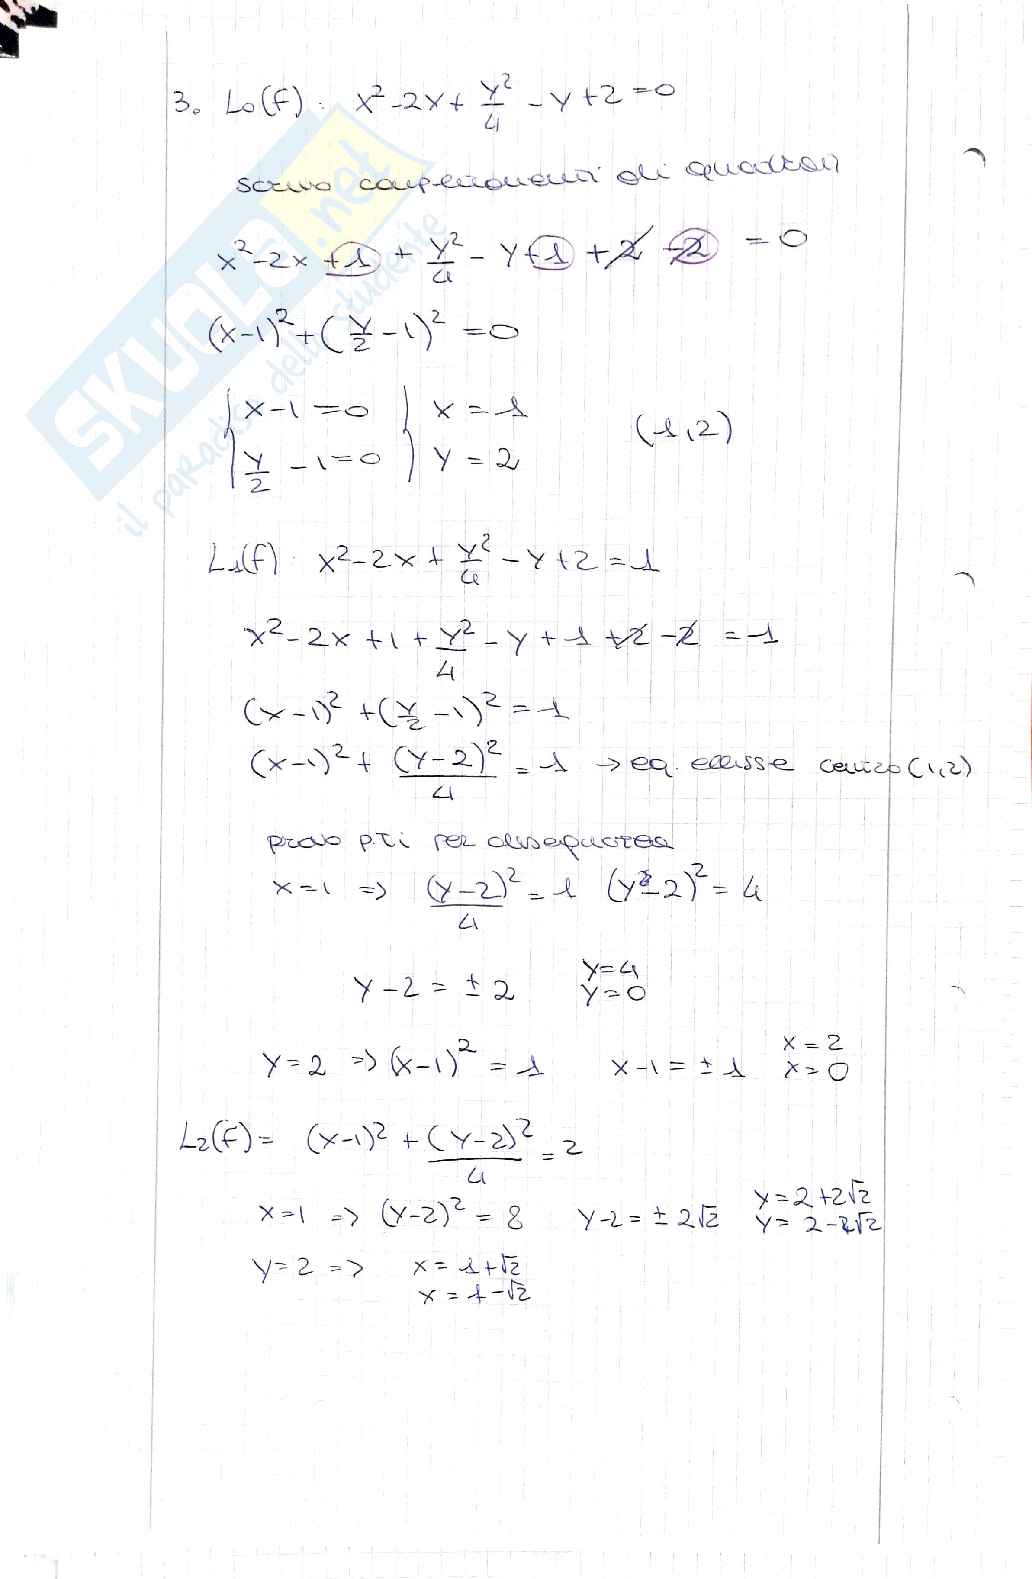 3. L₀(f): x²-2x+y²/4-y+2=0
scrivo completamenti di quadrati
x²-2x+1+y²/4-y+1+2-2=0
(x-1)²+(y/2-1)²=0
{x-1=0 {x=1 (1,2)
{y/2-1=0 {y=2
L₁(f): x²-2x+y²/4-y+2=1
x²-2x+1+y²/4-y+1+2-2=1
(x-1)²+(y/2-1)²=1
(x-1)²+(y-2)²/4=1 → eq. ellisse centro (1,2)
provo p.ti per disegnarla
x=1 => (y-2)²/4=1 (y-2)²=4
y-2=±2 y=4
y=0
y=2 => (x-1)²=1 x-1=±1 x=2
x=0
L₂(f)= (x-1)²+(y-2)²/4=2
x=1 => (y-2)²=8 y-2=±2√2 y=2+2√2
y=2-2√2
y=2 => x=1+√2
x=1-√2
SKUOLA.net
il paradiso dello studente